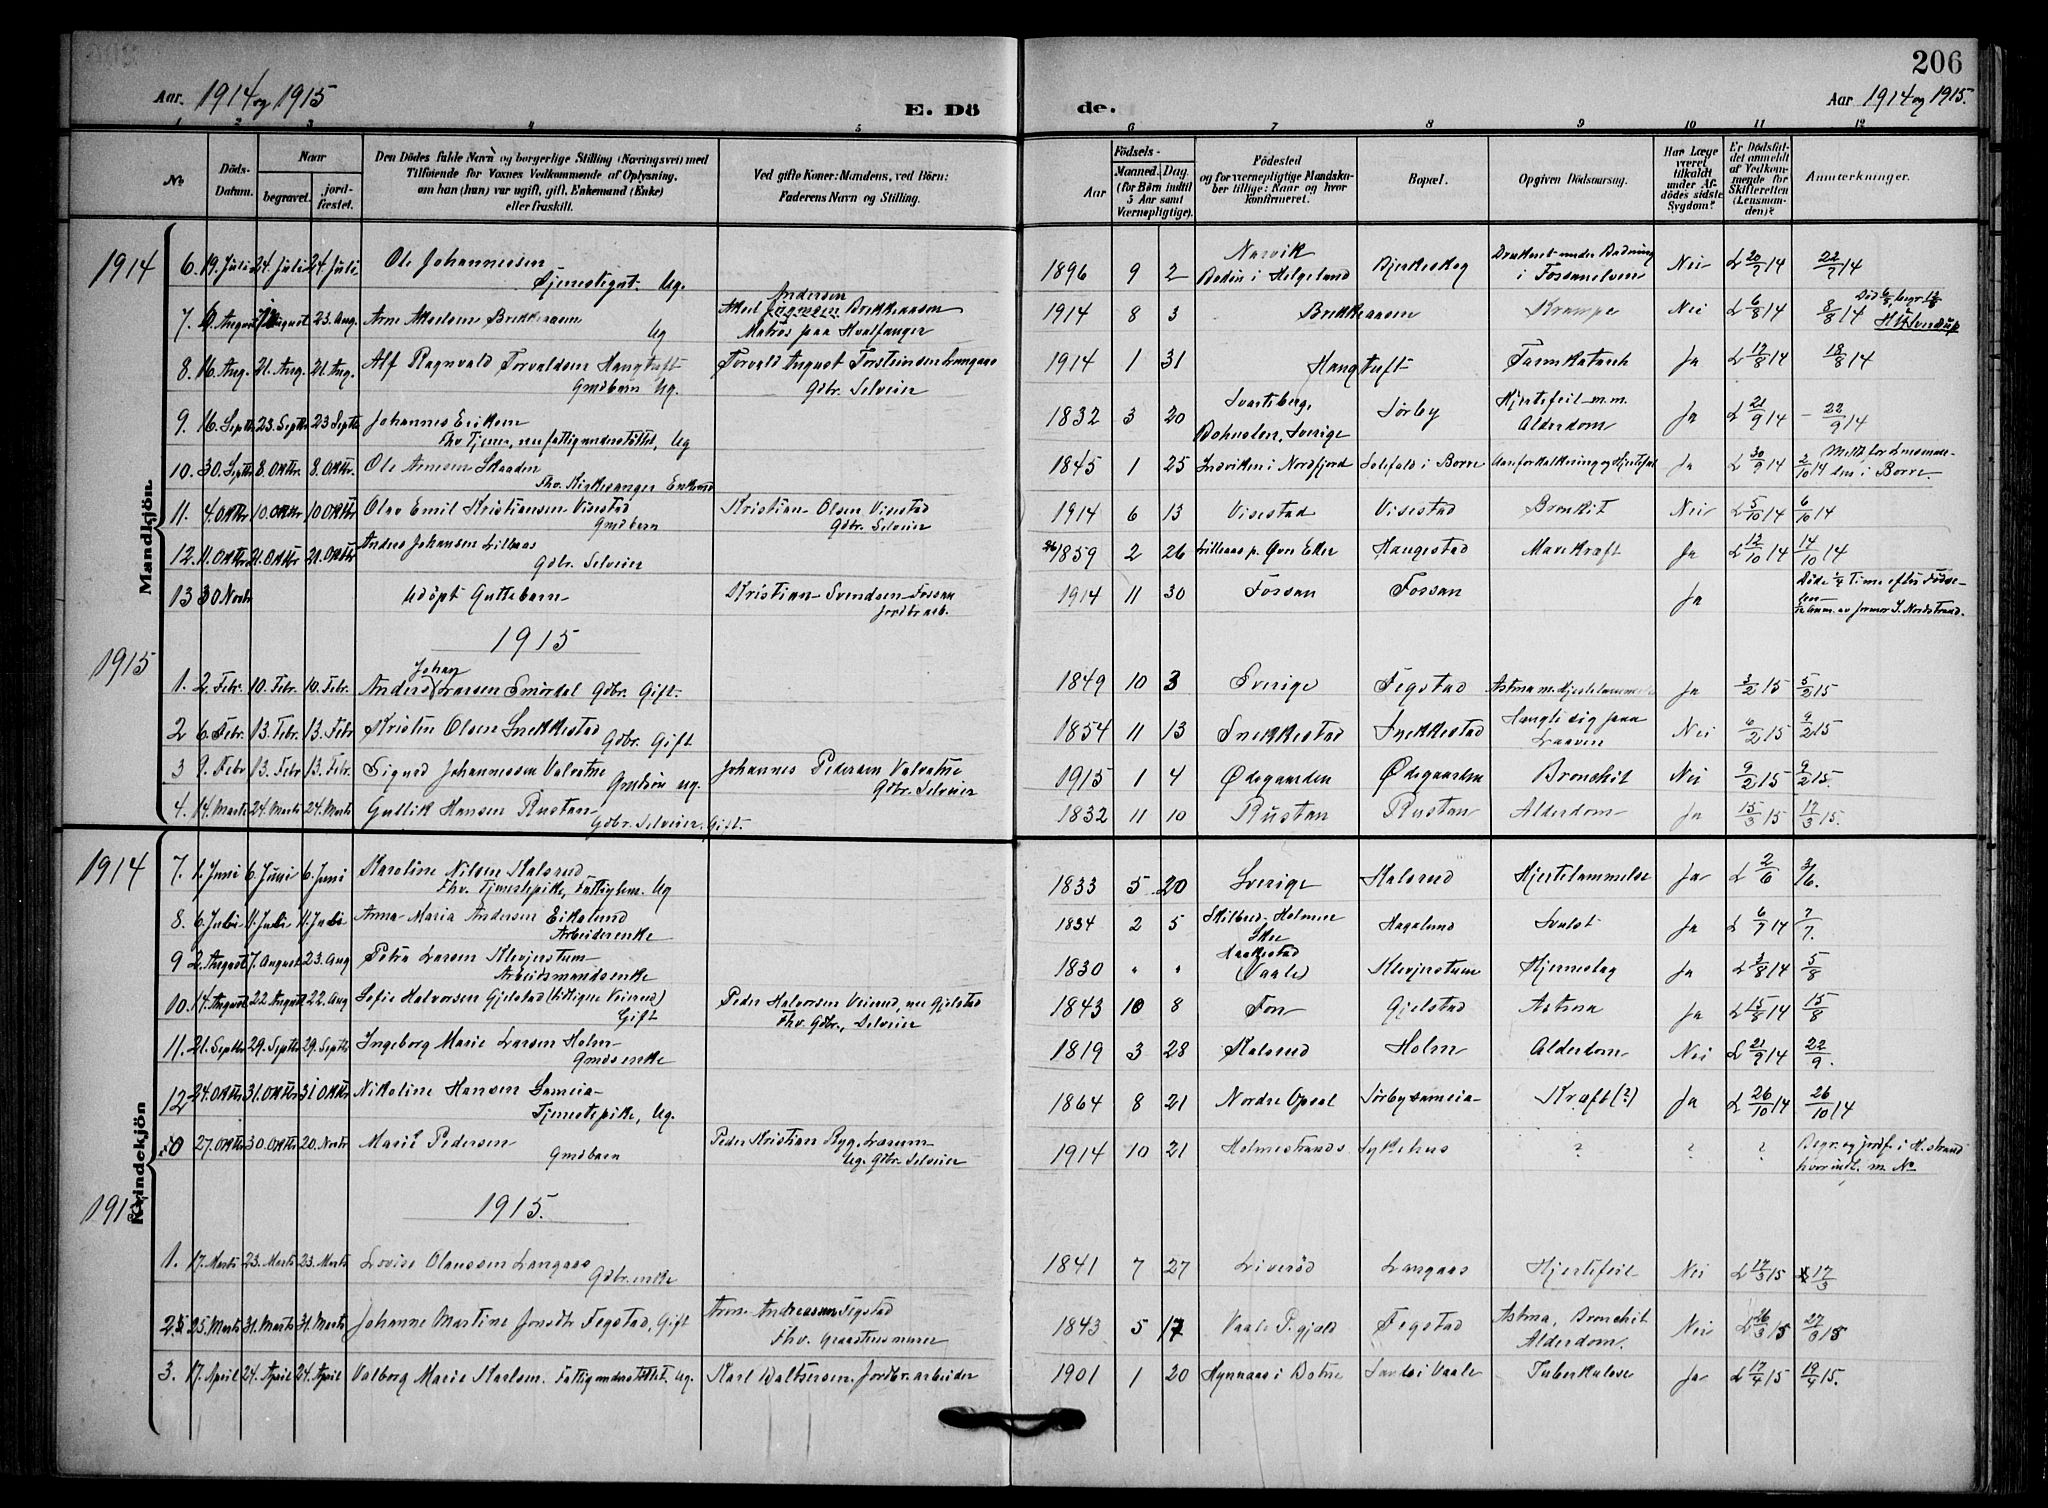 206
Aar. 1914 og 1915
E. Dö
de.
Aar 1914 og 1915.
1 2 3 4 5 6 7 8 9 10 11 12
No
Döds-Datum.
Naar
begravet.
jord-fæstet.
Den Dödes fulde Navn og borgerlige Stilling (Næringsvei) med
Tilföiende for Voxnes Vedkommende af Oplysning,
om han (hun) var ugift, gift, Enkemand (Enke)
eller fraskilt.
Ved gifte Koner: Mandens, ved Börn:
Faderens Navn og Stilling.
Födsels-
Aar
Maaned. Dag.
(for Börn indtil
5 Aar samt
Værnepligtige).
Födested
og for værnepligtige Mandska-
ber tillige: Naar og hvor
konfirmeret.
Bopæl.
Opgiven Dödsaarsag.
Har Læge
været
tilkaldt
under Af-
dödes sidste
Sygdom?
Er Dödsfal-
det anmeldt
af Vedkom-
mende for
Skifteretten
(Lensman-
den)?
Anmærkninger.
Mandkjön.
1914
6. 19. Juli 24. Juli 24 Juli Ole Johannessen Tjenestegut. Ug. 1896 9 2 Narvik Bodin i Helgeland Bjerkeskog Druknet under Badning i Fossanelven Nei L 20/7 14 22/7 14
7. August 23. Aug. Arne Akselsen Brekkeaasen Ug Aksel Andersen Brekkeaasen Matros paa Hvalfanger 1914 8 3 Brekkeaasen Krampe Nei L 6/8 14 8/8 14
8. 16. Aug. 21. Aug. 21. Aug. Alf Ragnvald Torvaldsen Haugtuft Gmdbarn Ug. Torvald August Torsteinsen Langaas Gdbr. Selveier 1914 1 31 Haugtuft Tarmkatarrh Ja L 17/8 14 18/8 14
9. 16. Septbr 23. Septbr 23 Septbr Johannes Eriksen Fhv. Tjener, nu fattigunderstöttet, Ug 1832 3 20 Svartsberg, Bohuslen, Sverige Sørby Hjertefeil m.m. Alderdom Ja L 21/9 14 22/9 14
10. 30. Septbr 8. Oktbr. 8. Oktbr. Ole Arnesen Skaaden Fhv. Kirkesanger Enkemd 1845 1 25 Indviken i Nordfjord Solefald i Borre Aareforkalkning og Hjertefeil Ja L 30/9 14 2/10 14 Meldt for Lensmanden i Borre.
11. 4. Oktbr 10. Oktbr 10 Oktbr Olav Emil Kristiansen Visestad Gmdbarn Kristian Olsen Visestad Gdbr. Selveier 1914 6 13 Visestad Visestad Bronkit Nei L 5/10 14 6/10 14
12. 11. Oktbr 21. Oktbr 21. Oktbr Anders Johansen Lilleaas Gdbr. Selveier 1859 2 26 Lilleaas p. Øvre Eker Haugestad Mavekræft Ja L 12/10 14 14/10 14
13 30 Novbr Udöpt Guttebarn Kristian Svendsen Fossan Jordbrarb. 1914 11 30 Fossan Fossan Ja Döde 1/4 Time efter Fødselen Anm. av Jmor J. Nordstrand.
1915
1915
1. 2. Febr. 10. Febr. 10. Febr. Anders Johan Larsen Smördal Gdbr. Gift. 1849 10 3 Sverige Fegstad Astma m. Hjertelammelse Ja 3/2 15 5/2 15
2 6. Febr. 13. Febr. 13. Febr Kristen Olsen Snekkestad Gdbr. Gift 1854 11 13 Snekkestad Snekkestad Hængte sig paa Laaven Nei 6/2 15 9/2 15
3 9. Febr 13. Febr 13. Febr. Sigurd Johannessen Valvatne Gmdsön Ug. Johannes Pedersen Valvatne Gdbr. Selveier 1915 1 4 Ødegaarden Ødegaarden Bronchit Nei 9/2 15 9/2 15.
4. 14. Marts 24. Marts 24. Marts Gullik Hansen Rustan Gdbr. Selveier, Gift. 1832 11 10 Rustan Rustan Alderdom Ja 15/3 15 17/3 15.
Kvindekjön
1914
7. 1. Juni 6. Juni 6. Juni Karoline Nilsen Kalsrud Fhv. Tjenestepike, Fattiglem. Ug 1833 5 20 Sverige Kalsrud Hjertelammelse Ja L 2/6 3/6.
8. 6. Juli 11. Juli 11. Juli Anna Maria Andersen Eikelund Arbeiderenke 1834 2 5 Hagalund Svulst Ja L 6/7 14 7/7.
9 2. August 7. August 23. Aug Petra Larsen Klevjerstum Arbeidsmandsenke 1830 " " Haakestad (Vaale) Klevjerstum Hjerneslag Ja L 3/8 14 5/8
10. 14. August 22. August 22. Aug Sofie Halvorsen Gjelstad (tidligere Veierud) Gift Peder Halvorsen Veierud, nu Gjelstad Fhv. Gdbr., Selveier 1843 10 8 Fon Gjelstad Astma Ja L 15/8 14 15/8
11. 21. Septbr 29. Septbr 29. Septbr Ingeborg Marie Larsen Holm Gmdsenke 1819 3 28 Kalsrud Holm Alderdom Nei L 21/9 14 22/9.
12 24. Oktbr 31. Oktbr 31 Oktbr Nikoline Hansen Sameia Tjenestepike, Ug. 1864 8 21 Nordre Opsal Sørby sameia Kræft (?) Ja L 26/10 14 26/10 14
0 27. Oktbr 30. Oktbr 20. Novbr Marie Pedersen Gmdbarn Peder Kristian Ryg, Læsum Ug. Gdbr. Selveier 1914 10 21 Holmestrands Sykehus ? ? ? Begr. og jordf. i H.strand hvor indt. m. No
1915.
1915
1. 17. Marts 23. Marts 23. Marts Lovise Olaussen Langaas Gdbr.enke 1841 7 27 Liveröd Langaas Hjertefeil Nei L 17/3 15 17/3
2 25. Marts 31. Marts 31. Marts Johanne Martine Jonsdtr Fegstad, Gift Arne Andreassen Fegstad Fhv. Graastensmurer 1843 5 17 Vaale P.gjeld Fegstad Astma, Bronchit Alderdom. Nei L 26/3 15 27/3 15
3. 17. April 24. April 24. April Valborg Marie Karlsen. Fattigunderstöttet, Ug. Karl Baltsersen, Jordbr.arbeider 1901 1 20 Hynnaas i Botne Sande i Vaale Tuberkulose Ja L 17/4 15 19/4 15.